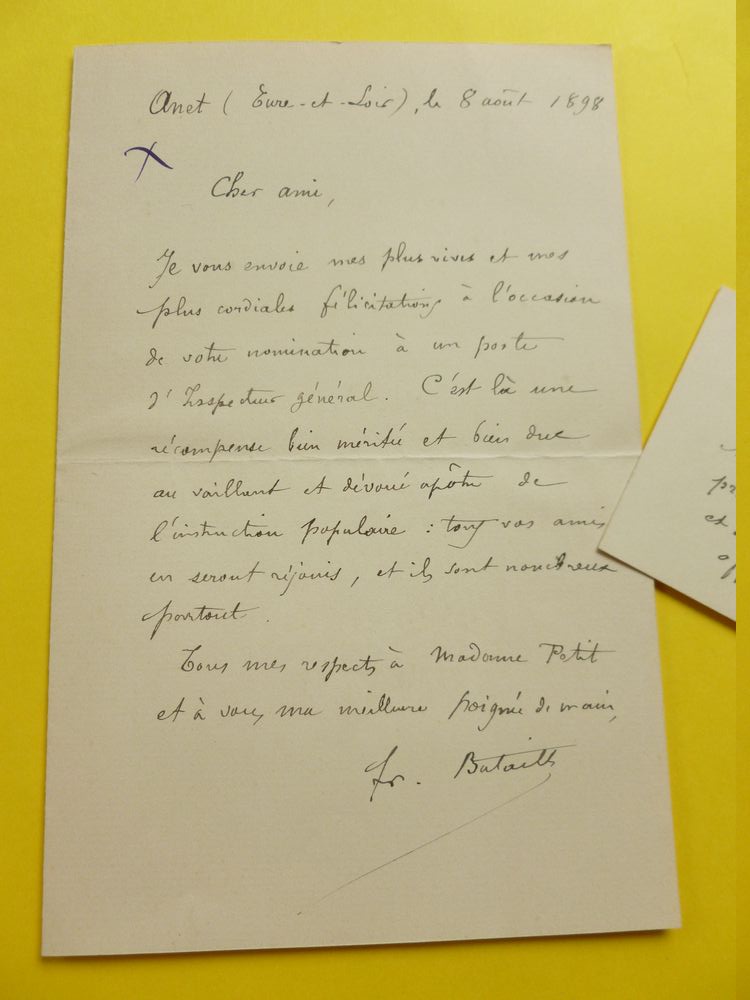 Anet (Eure-et-Loir), le 8 août 1898
Cher ami,
Je vous envoie mes plus vives et mes
plus cordiales félicitations à l'occasion
de votre nomination à un poste
d'Inspecteur général. C'est là une
récompense bien méritée et bien due
au vaillant et dévoué apôtre de
l'instruction populaire : tous vos amis
en seront réjouis, et ils sont nombreux
partout.
Tous mes respects à Madame Petit
et à vous, ma meilleure poignée de main,
Fr. Bataille